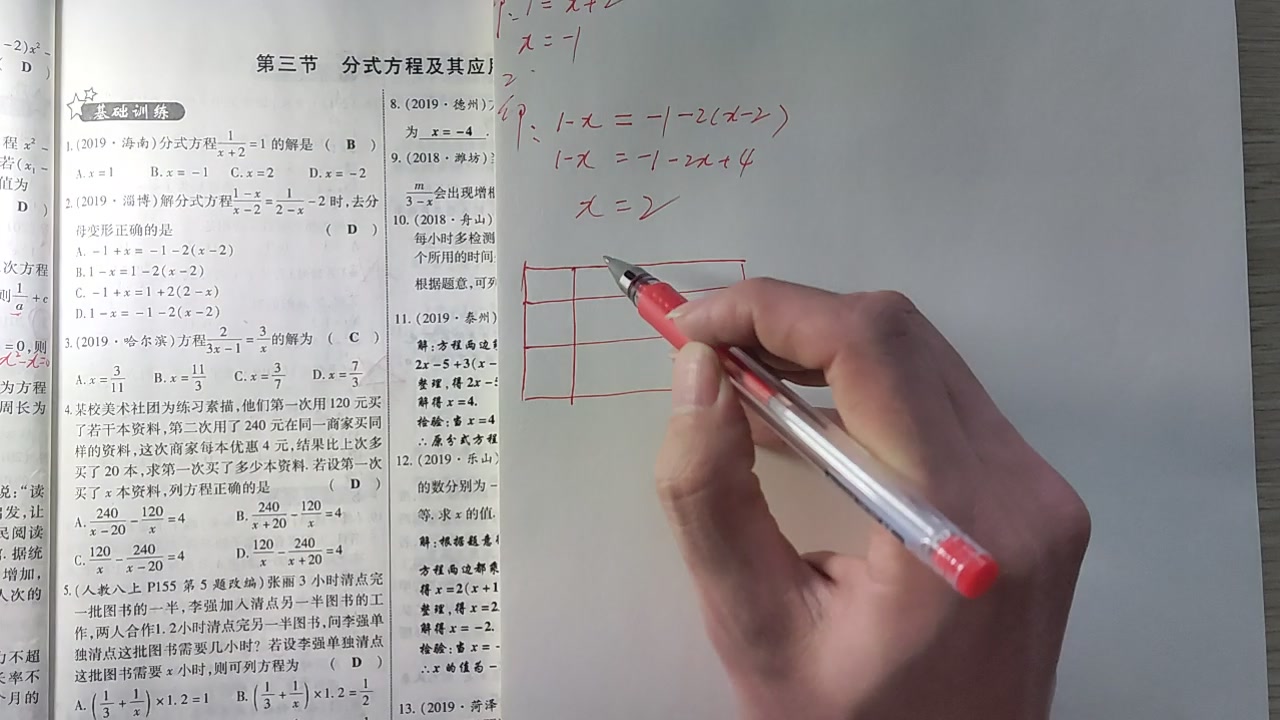 -2)x²-
( D )
程 x²-
若(x₁-
值为
D )
次方程
则1/a+c
=0,则
x²-x=0
为方程
周长为
说:“读
出发,让
民阅读
.据统
增加,
人次的
力不超
长率不
个月的
第三节 分式方程及其应用
基础训练
1.(2019·海南)分式方程1/(x+2)=1的解是 ( B )
A.x=1 B.x=-1 C.x=2 D.x=-2
2.(2019·淄博)解分式方程(1-x)/(x-2)=1/(2-x)-2时,去分
母变形正确的是 ( D )
A.-1+x=-1-2(x-2)
B.1-x=1-2(x-2)
C.-1+x=1+2(2-x)
D.1-x=-1-2(x-2)
3.(2019·哈尔滨)方程2/(3x-1)=3/x的解为 ( C )
A.x=3/11 B.x=11/3 C.x=3/7 D.x=7/3
4.某校美术社团为练习素描,他们第一次用120元买
了若干本资料,第二次用了240元在同一商家买同
样的资料,这次商家每本优惠4元,结果比上次多
买了20本,求第一次买了多少本资料.若设第一次
买了x本资料,列方程正确的是 ( D )
A.240/(x-20)-120/x=4 B.240/(x+20)-120/x=4
C.120/x-240/(x-20)=4 D.120/x-240/(x+20)=4
5.(人教八上P155第5题改编)张丽3小时清点完
一批图书的一半,李强加入清点另一半图书的工
作,两人合作1.2小时清点完另一半图书,问李强单
独清点这批图书需要几小时?若设李强单独清点
这批图书需要x小时,则可列方程为 ( D )
A.(1/3+1/x)×1.2=1 B.(1/3+1/x)×1.2=1/2
8.(2019·德州)
为 x=-4 .
9.(2018·潍坊)
m/(3-x)会出现增根
10.(2018·舟山)
每小时多检测
个所用的时间
根据题意,可列
11.(2019·泰州)
解:方程两边
2x-5+3(x-
整理,得2x-5
解得x=4.
检验:当x=4
∴原分式方程
12.(2019·乐山)
的数分别为-
等.求x的值.
解:根据题意
方程两边都乘
得x=2(x+1
整理,得x=2
解得x=-2.
检验:当x=-
∴x的值为-
13.(2019·菏泽
1=x+2
x=-1
2.
解:1-x=-1-2(x-2)
1-x=-1-2x+4
x=2